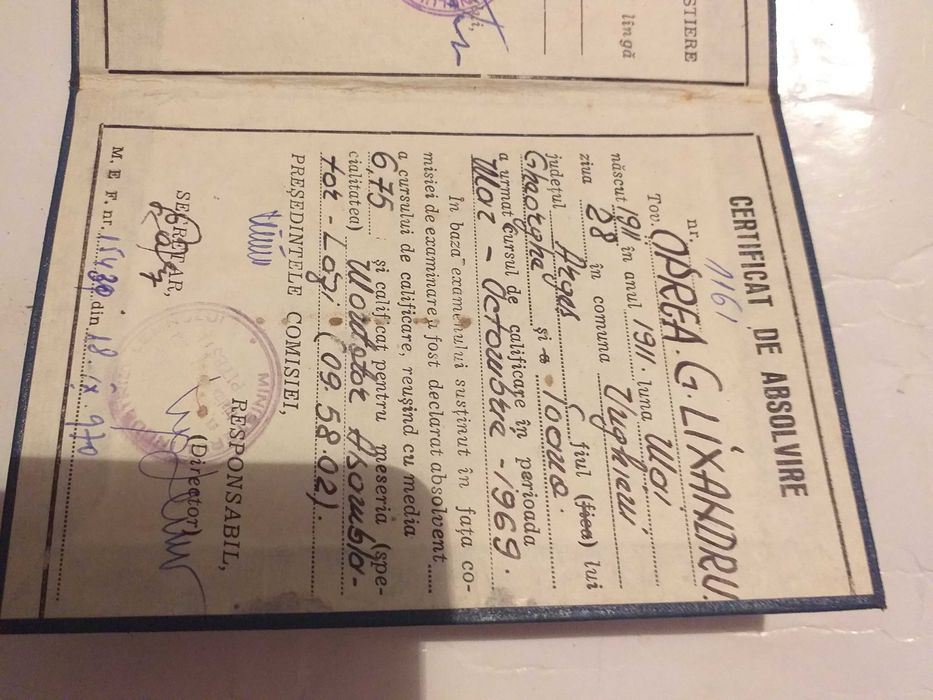 STIERE
lîngă
CERTIFICAT DE ABSOLVIRE
nr. 1161
Tov. OPREA. G. LIXANDRU.
născut 1911 în anul 1911. luna Mai
ziua 28 în comuna Ungheni
județul Argeș fiul (fiica) lui
Gheorghe și a Ioana.
a urmat cursul de calificare în perioada
Mar - Octombrie - 1969.
În baza examenului susținut în fața co-
misiei de examinare a fost declarat absolvent
a cursului de calificare, reușind cu media
6,75 și calificat pentru meseria (spe-
cialitatea) Montator Asambla-
tor - Lăzi (09.58.02).
PREȘEDINTELE COMISIEI,
RESPONSABIL,
(Director)
SECRETAR,
M. E. F. nr. din 18. IX 970